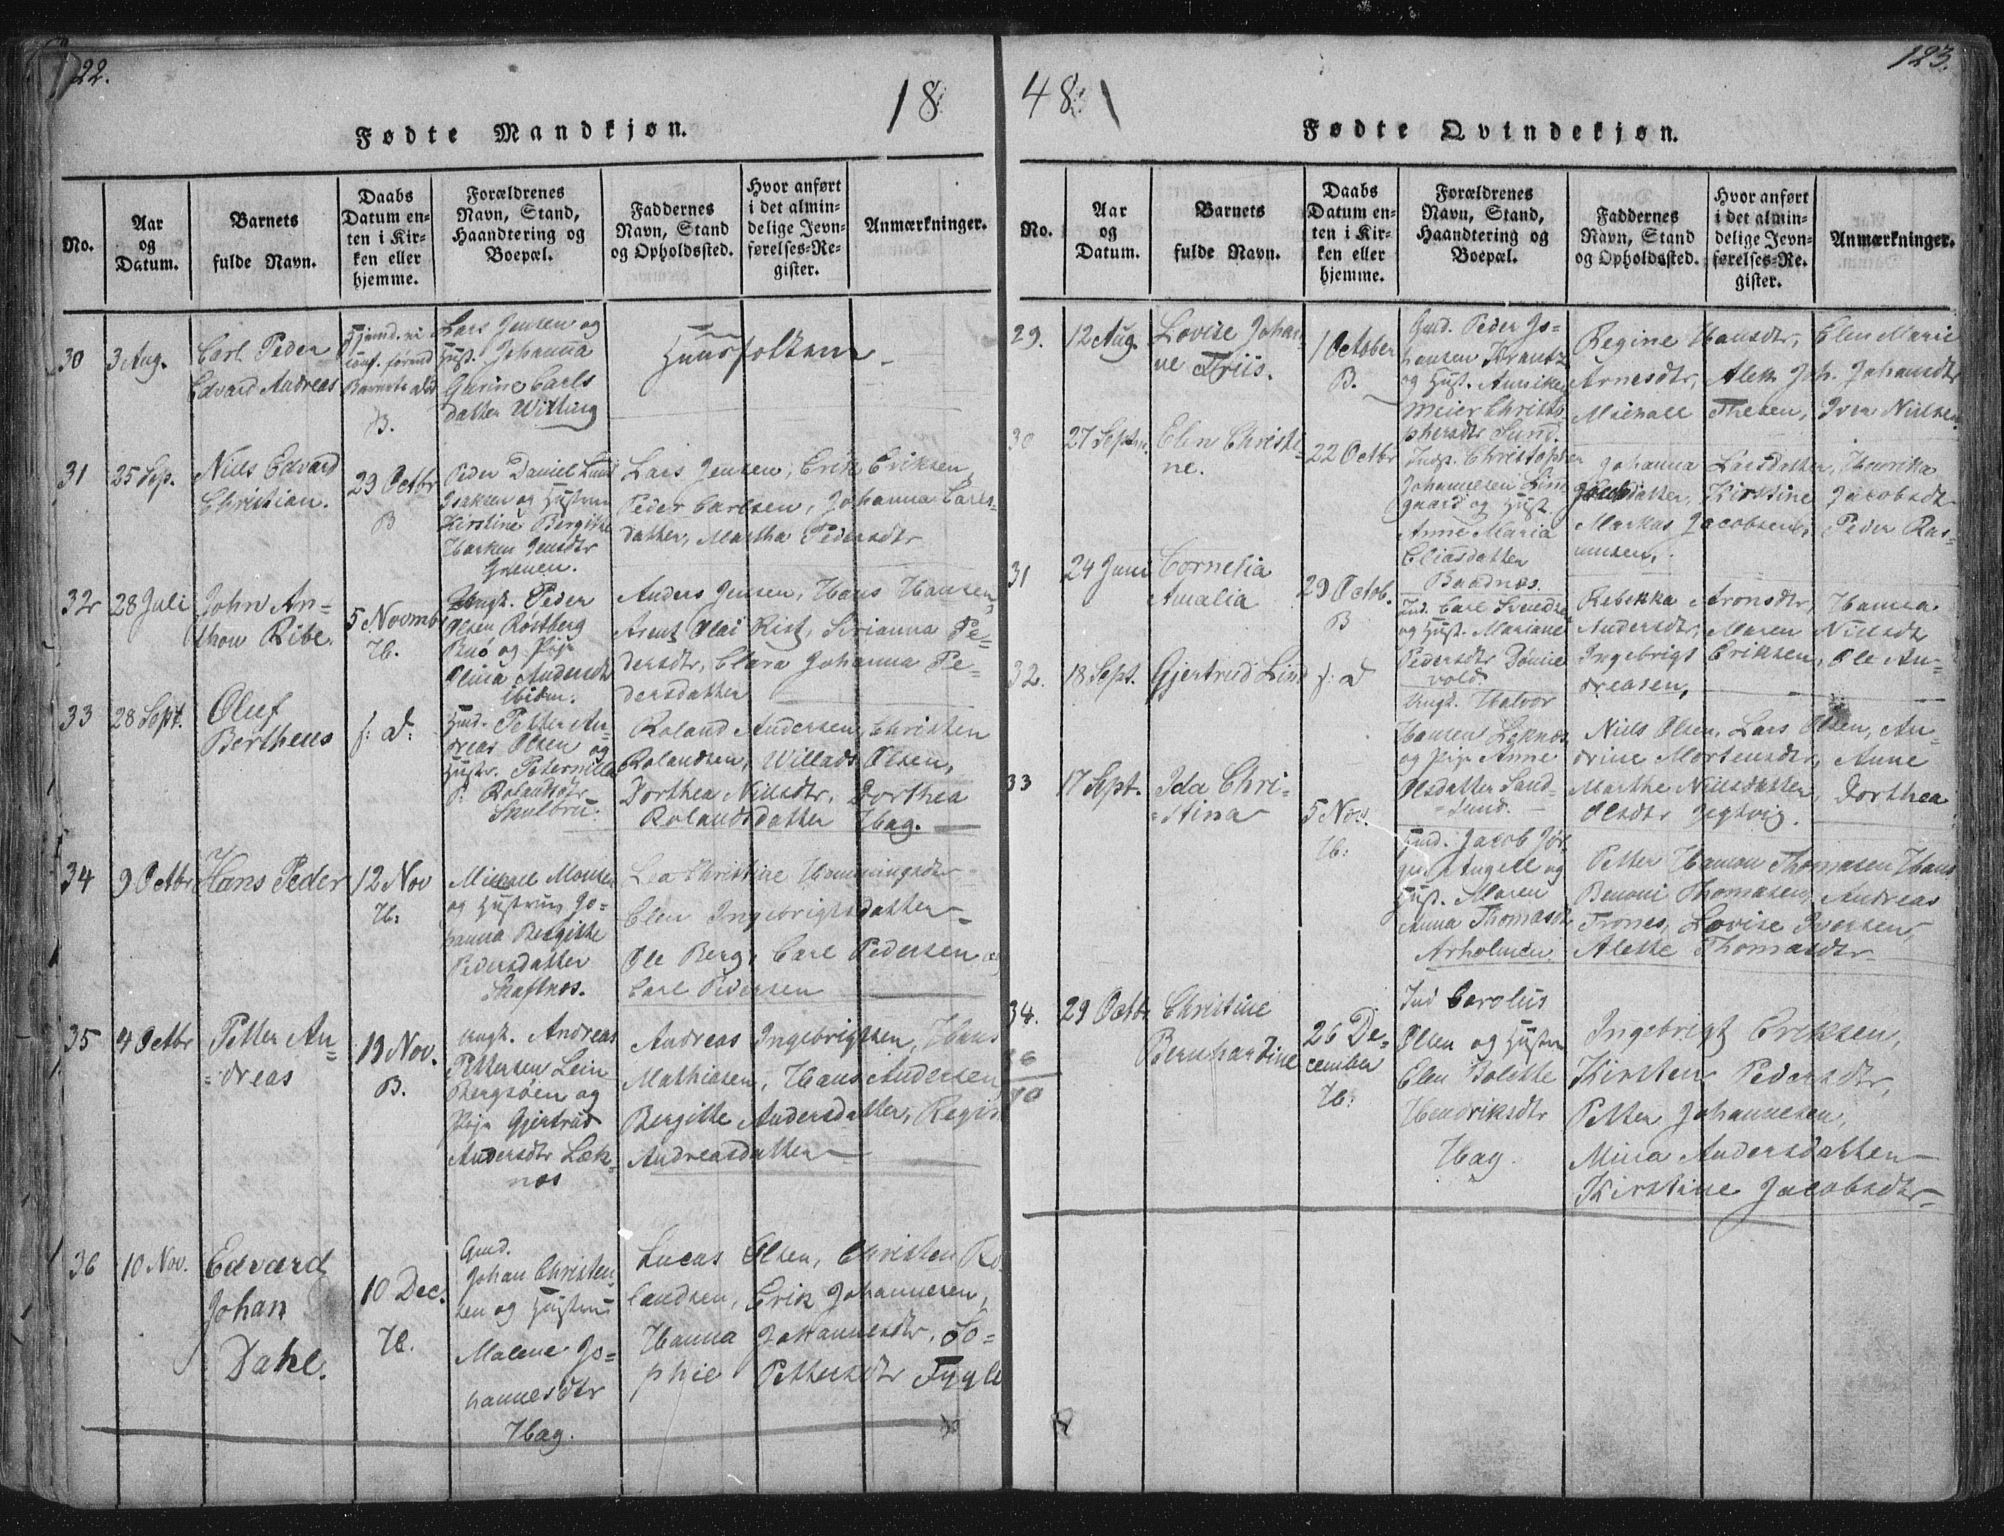 122.
18
Fødte Mandkjøn.
No.
Aar
og
Datum.
Barnets
fulde Navn.
Daabs
Datum en-
ten i Kir-
ken eller
hjemme.
Forældrenes
Navn, Stand,
Haandtering og
Boepæl.
Faddernes
Navn, Stand
og Opholdssted.
Hvor anført
i det almin-
delige Jevn-
førelses-Re-
gister.
Anmærkninger.
30
3 Aug.
Carl Peder
Edvard Andreas
B.
Lars Jensen og
Hust. Johanna
Gurine Carls
datter Witting
Huusfolkene
31
25 Sep.
Niels Edvard
Christian.
29 Octbr
B
Peder Daniel Lund
Isaksen og Hustru
Kirstine Bergitte
Harken Jensdtr
Grenen.
Lars Jensen, Erik Eriksen,
Peder Carlsen, Johanna Carls-
datter, Martha Pedersdtr
32
28 Juli
John An-
thon Ribe.
5 Novmb
H.
Ungk. Peder
Olsen Rostberg
Buø og Pige
Olina Andersdtr
ibidm.
Anders Jensen, Hans Hansen,
Arent Olai Rist, Sirianna Pe-
dersdtr, Clara Johanna Pe-
dersdatter
33
28 Sept.
Oluf
Bertheus
f: d:
Hmd. Petter An-
dreas Olsen og
Hustr. Peternilla
Rolandsdtr
Skulbru.
Roland Andersen, Christen
Rolandsen, Willads Olsen,
Dorthea Nilsdtr, Dorthea
Rolandsdatter Hag.
34
9 Octbr
Hans Peder
12 Nov
H:
Michael Monsen
og Hustru Jo-
hanna Bergitte
Pedersdatter
Skaftnæs.
Lea Christine Hemmingsdtr
Elen Ingebrigtsdatter
Ole Berg, Carl Pedersen og
Carl Pedersen
35
4 Octbr
Petter An-
dreas
19 Nov.
B.
Ungk. Andreas
Pettersen Lein
Bergsøen og
Pige Gjertrud
Andersdtr Læk-
næs
Andreas Ingebrigtsen, Hans
Mathiasen, Hans Andersen
Bergitte Andersdatter, Regin
Andreasdatter
36
10 Nov.
Edvard
Johan
Dahl.
10 Dec.
H.
Gmd.
Johan Christen-
sen og Hustru
Malene Jo-
hannesdtr
Hag.
Lucas Olsen, Christen Ro-
landsen, Erik Johannesen,
Hanna Johannesdtr, So-
phie Pettersdtr Fygle
123.
48
Fødte Qvindekjøn.
No.
Aar
og
Datum.
Barnets
fulde Navn.
Daabs
Datum en-
ten i Kir-
ken eller
hjemme.
Forældrenes
Navn, Stand,
Haandtering og
Boepæl.
Faddernes
Navn, Stand
og Opholdssted.
Hvor anført
i det almin-
delige Jevn-
førelses-Re-
gister.
Anmærkninger.
29.
12 Aug.
Lovise Johan
ne Friis.
1 October
B.
Gmd. Peder Jo-
hansen Krantz
og Hust. Anniken
Meier Christo
phersdtr Sund.
Regine Hansdtr, Elen Marie
Arnesdtr, Aleth Joh. Johansdtr
Michael Thesen, Iver Nilsen
30
27 Septbr.
Elen Christi-
ne.
22 Octbr
Indp. Christopher
Johannesen Lind
gaard og Hust.
Anne Maria
Eliasdatter
Baadnæs.
Johanna Larsdatter, Henrika
Jacobsdatter, Kirstine Jacobsdtr
Markus Jacobsen, Peder Ras-
mussen,
31
24 Juni
Cornelia
Amalia
29 Octob.
B
Ind. Carl Svendse
og Hust. Mariane
Pedersdtr Dønne
vold.
Rebekka Aronsdtr, Hanna
Andersdtr, Maren Nilsdtr
Ingebrigt Eriksen, Ole An-
dreasen,
32.
18 Sept.
Gjertrud Lind
f: d
Ungk. Halvor
Hansen Leknæs
og Pige Anne
Olsdatter Sand-
sund.
Niels Olsen, Lars Olsen, An-
drine Mortensdtr, Anne
Marthe Nilsdatter, Dorthea
Olsdtr Jegtvig.
33
17 Sept.
Ida Chri-
stina
5 Nov.
H:
Hmd. Jacob Jør
gen Angell og
Hust. Maren
Anna Thomasdtr
Arholmen.
Petter Hamon Thomasen Hans
Benoni Thomasen, Andreas
Trones, Lovise Iversen
Alette Thomasdtr
34.
29 Octbr
Christine
Bernhardine
26 De-
cember
H:
Ind Carolus
Olsen og Hustru
Elen Bolette
Hendriksdtr
Hag.
Ingebrigt Eriksen,
Kirsten Pedersdtr,
Petter Johannesen,
Mina Andersdatter
Kirstine Jacobsdtr
36
70